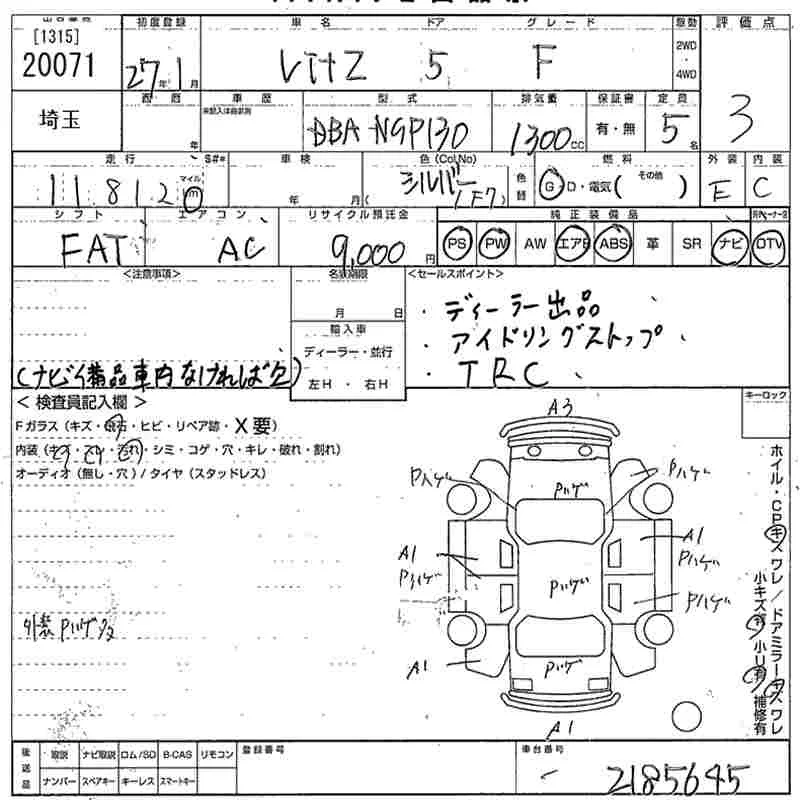 初度登録 車名 ドア グレード 駆動 評価点
[1315]
20071 27年1月 Vitz 5 F 2WD・4WD 3
車歴 型式 排気量 保証書 定員
埼玉 年 ※記入は自家用 DBA-NSP130 1300cc 有・無 5名
走行 S#* 車検 色(Col No) 燃料 その他 外装 内装
118120 マイル km 年 月( シルバー(1F7) 色替 G・D・電気( ) E C
シフト エアコン リサイクル預託金 純正装備品
FAT AC 9,000円 PS PW AW エアB ABS 革 SR ナビ DTV
<注意事項> 名変期限 <セールスポイント>
月 日
・ディーラー出品
輸入車
・アイドリングストップ
ディーラー・並行
・TRC
(ナビ備品車内なければ欠)
左H・右H
<検査員記入欄> キーロック
Fガラス(キズ・飛石・ヒビ・リペア跡・X要)
内装(キズ・スレ・汚れ・シミ・コゲ・穴・キレ・破れ・割れ)
オーディオ(無し・穴)/タイヤ(スタッドレス)
A3
Pハゲ Pハゲ Pハゲ
A1 A1
Pハゲ Pハゲ
Pハゲ Pハゲ
外装Pハゲ
Pハゲ
A1
A1
ホイル・CPキズワレ/ドアミラーキズワレ
小キズ有 小U有 補修有
後送品 取説 ナビ取説 ロム/SD B-CAS リモコン 登録番号 車台番号
ナンバー スペアキー キーレス スマートキー - 2185645